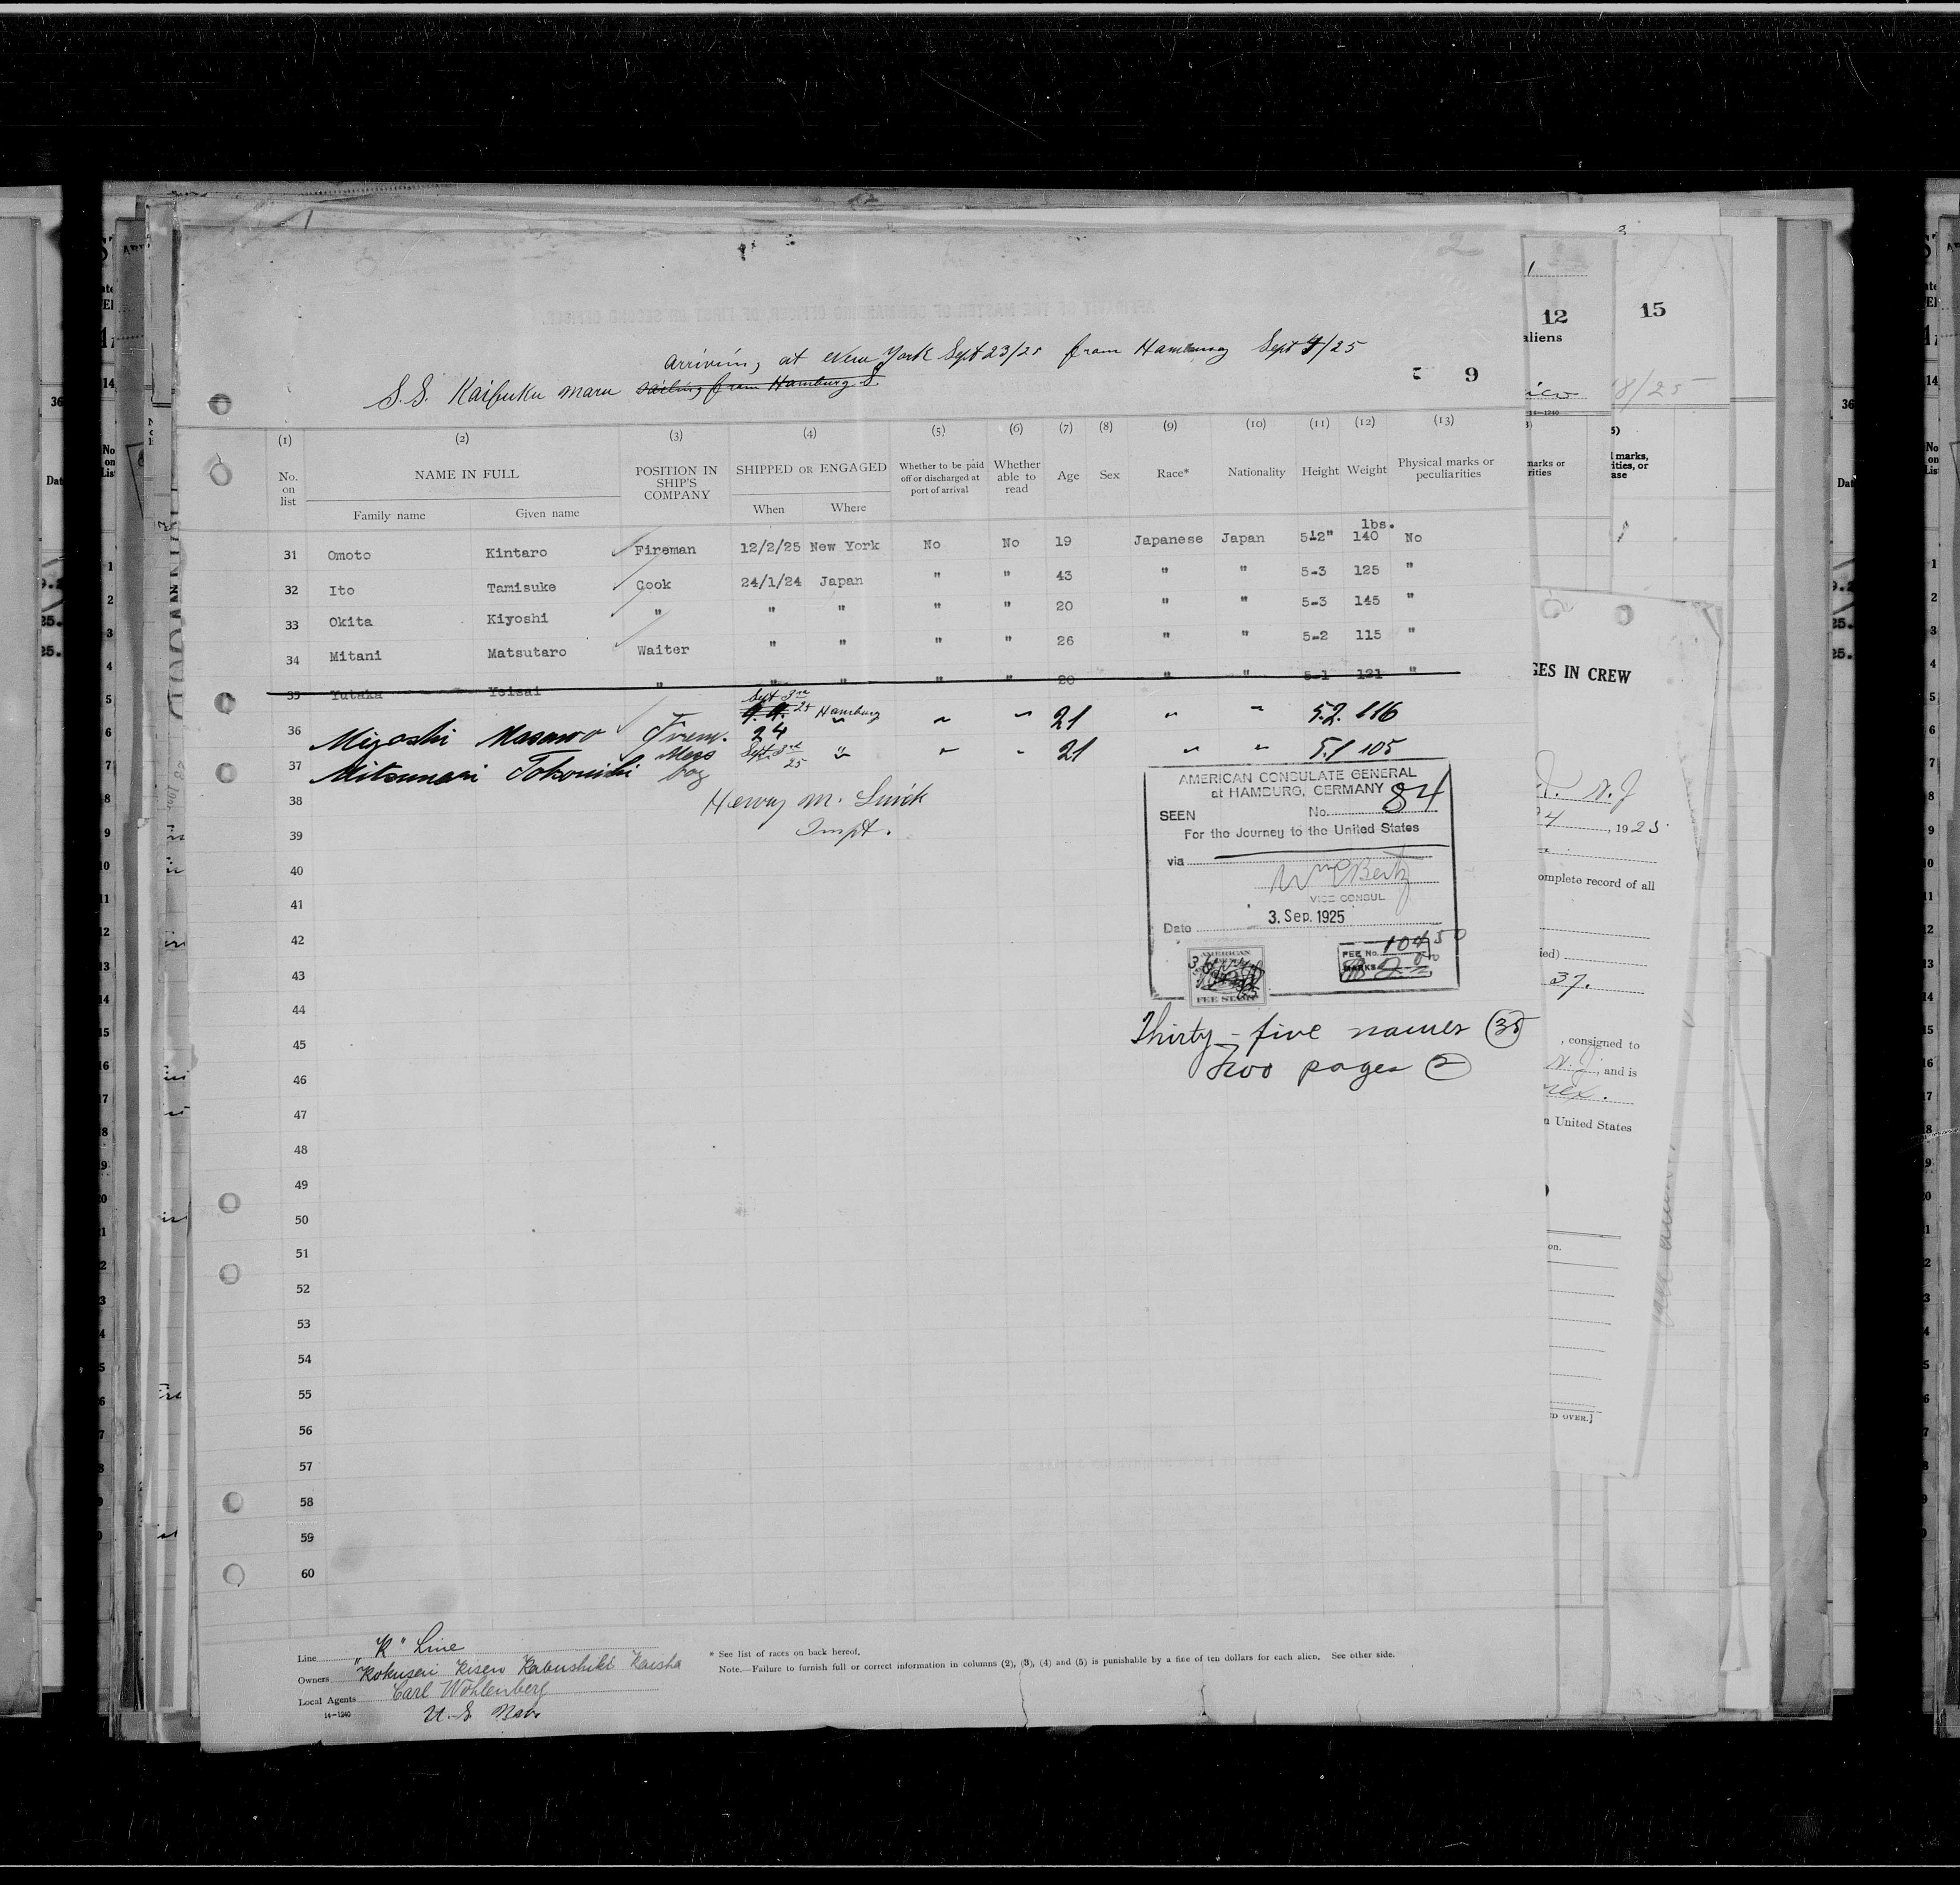 2
Arriving at New York Sept 23/25 from Hamburg Sept 4/25
S.S. Kaifuku Maru sailing from Hamburg S.
9
(1) (2) (3) (4) (5) (6) (7) (8) (9) (10) (11) (12) (13)
No. on list NAME IN FULL POSITION IN SHIP'S COMPANY SHIPPED OR ENGAGED Whether to be paid off or discharged at port of arrival Whether able to read Age Sex Race* Nationality Height Weight Physical marks or peculiarities
Family name Given name When Where
lbs.
31 Omoto Kintaro Fireman 12/2/25 New York No No 19 Japanese Japan 5-2" 140 No
32 Ito Tamisuke Cook 24/1/24 Japan " " 43 " " 5-3 125 "
33 Okita Kiyoshi " " " " " 20 " " 5-3 145 "
34 Mitani Matsutaro Waiter " " " " 26 " " 5-2 115 "
35 Yutaka Yeisai " " " " " 20 " " 5-1 121 "
36 Miyoshi Masawo Firem. Sept 3rd 25 Hamburg " " 21 " " 5.2. 116
37 Mitsunari Tokouichi Mess boy Sept 3rd 25 " " " 21 " " 5.1 105
38
39
40
41
42
43
44
45
46
47
48
49
50
51
52
53
54
55
56
57
58
59
60
Impt.
AMERICAN CONSULATE GENERAL
at HAMBURG, GERMANY
SEEN No. 84
For the Journey to the United States
via
VICE CONSUL
Date 3. Sep. 1925
FEE No. 10450
MARKS
AMERICAN
FEE STAMP
Thirty-five names (35)
Two pages (2)
Line "K" Line
Owners "Kokusai Kisen Kabushiki Kaisha
Local Agents Carl Wohlenberg
14-1240
* See list of races on back hereof.
Note.—Failure to furnish full or correct information in columns (2), (3), (4) and (5) is punishable by a fine of ten dollars for each alien. See other side.
12
aliens
14-1240
marks or
rities
15
18/25
l marks,
ities, or
ase
GES IN CREW
N.J
, 1925.
omplete record of all
ied)
37.
, consigned to
N.J., and is
n United States
on.
D OVER.]